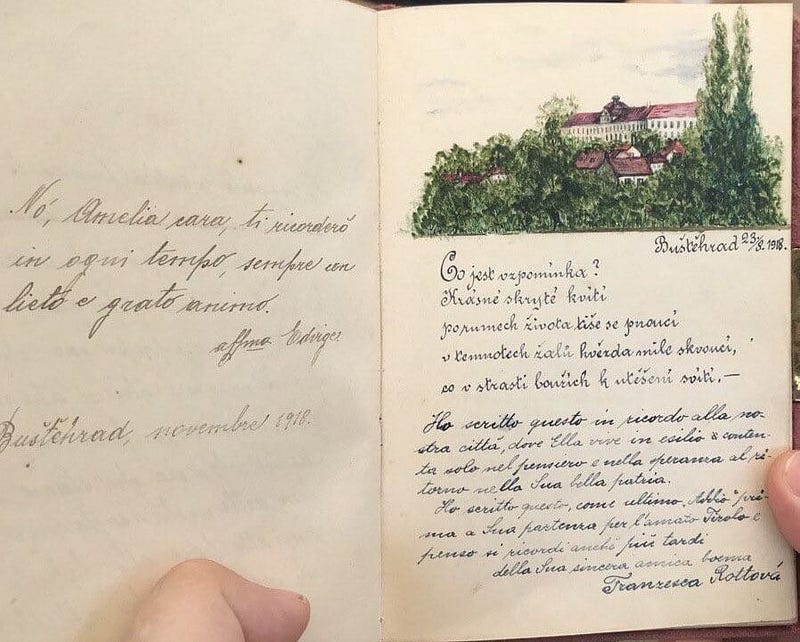 Nó, Amelia cara, ti ricorderó
in ogni tempo, sempre con
lieto e grato animo.
affma Edvige
Buštěhrad, novembre 1918.
Buštěhrad 23/8. 1918.
Co jest vzpomínka?
Krásné skryté kvítí
po rumech života tiše se pnoucí
v temnotech žalů hvězda mile skvoucí,
co v strasti bouřích k utěšení svítí. —
Ho scritto questo in ricordo alla no-
stra cittá, dove Ella vive in esilio e conten-
ta solo nel pensiero e nella speranza al ri-
torno nella Sua bella patria.
Ho scritto questo, come ultimo „Addio" pri-
ma a Sua partenza per l'amato Tirolo e
penso si ricordi anche piú tardi
della Sua sincera amica boema
Franzesca Rottová